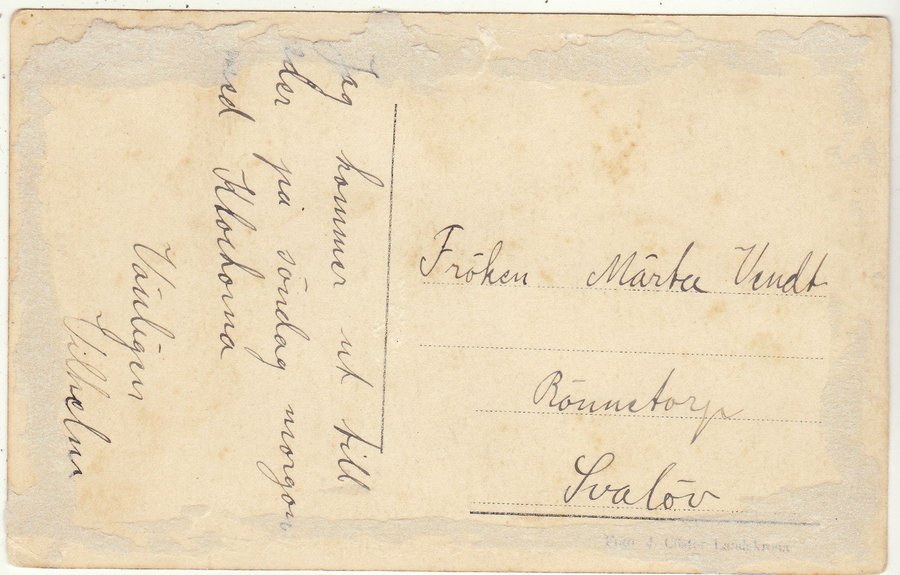 Jag kommer ut till
eder på söndag morgon
med Klockorna
Vänligen
Vilhelm
Fröken Märta Vendt
Rönnetorp
Svalöv
Landskrona